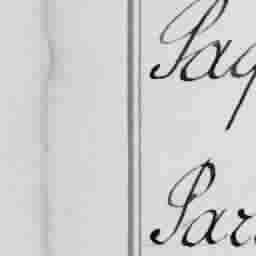 Paq
Par